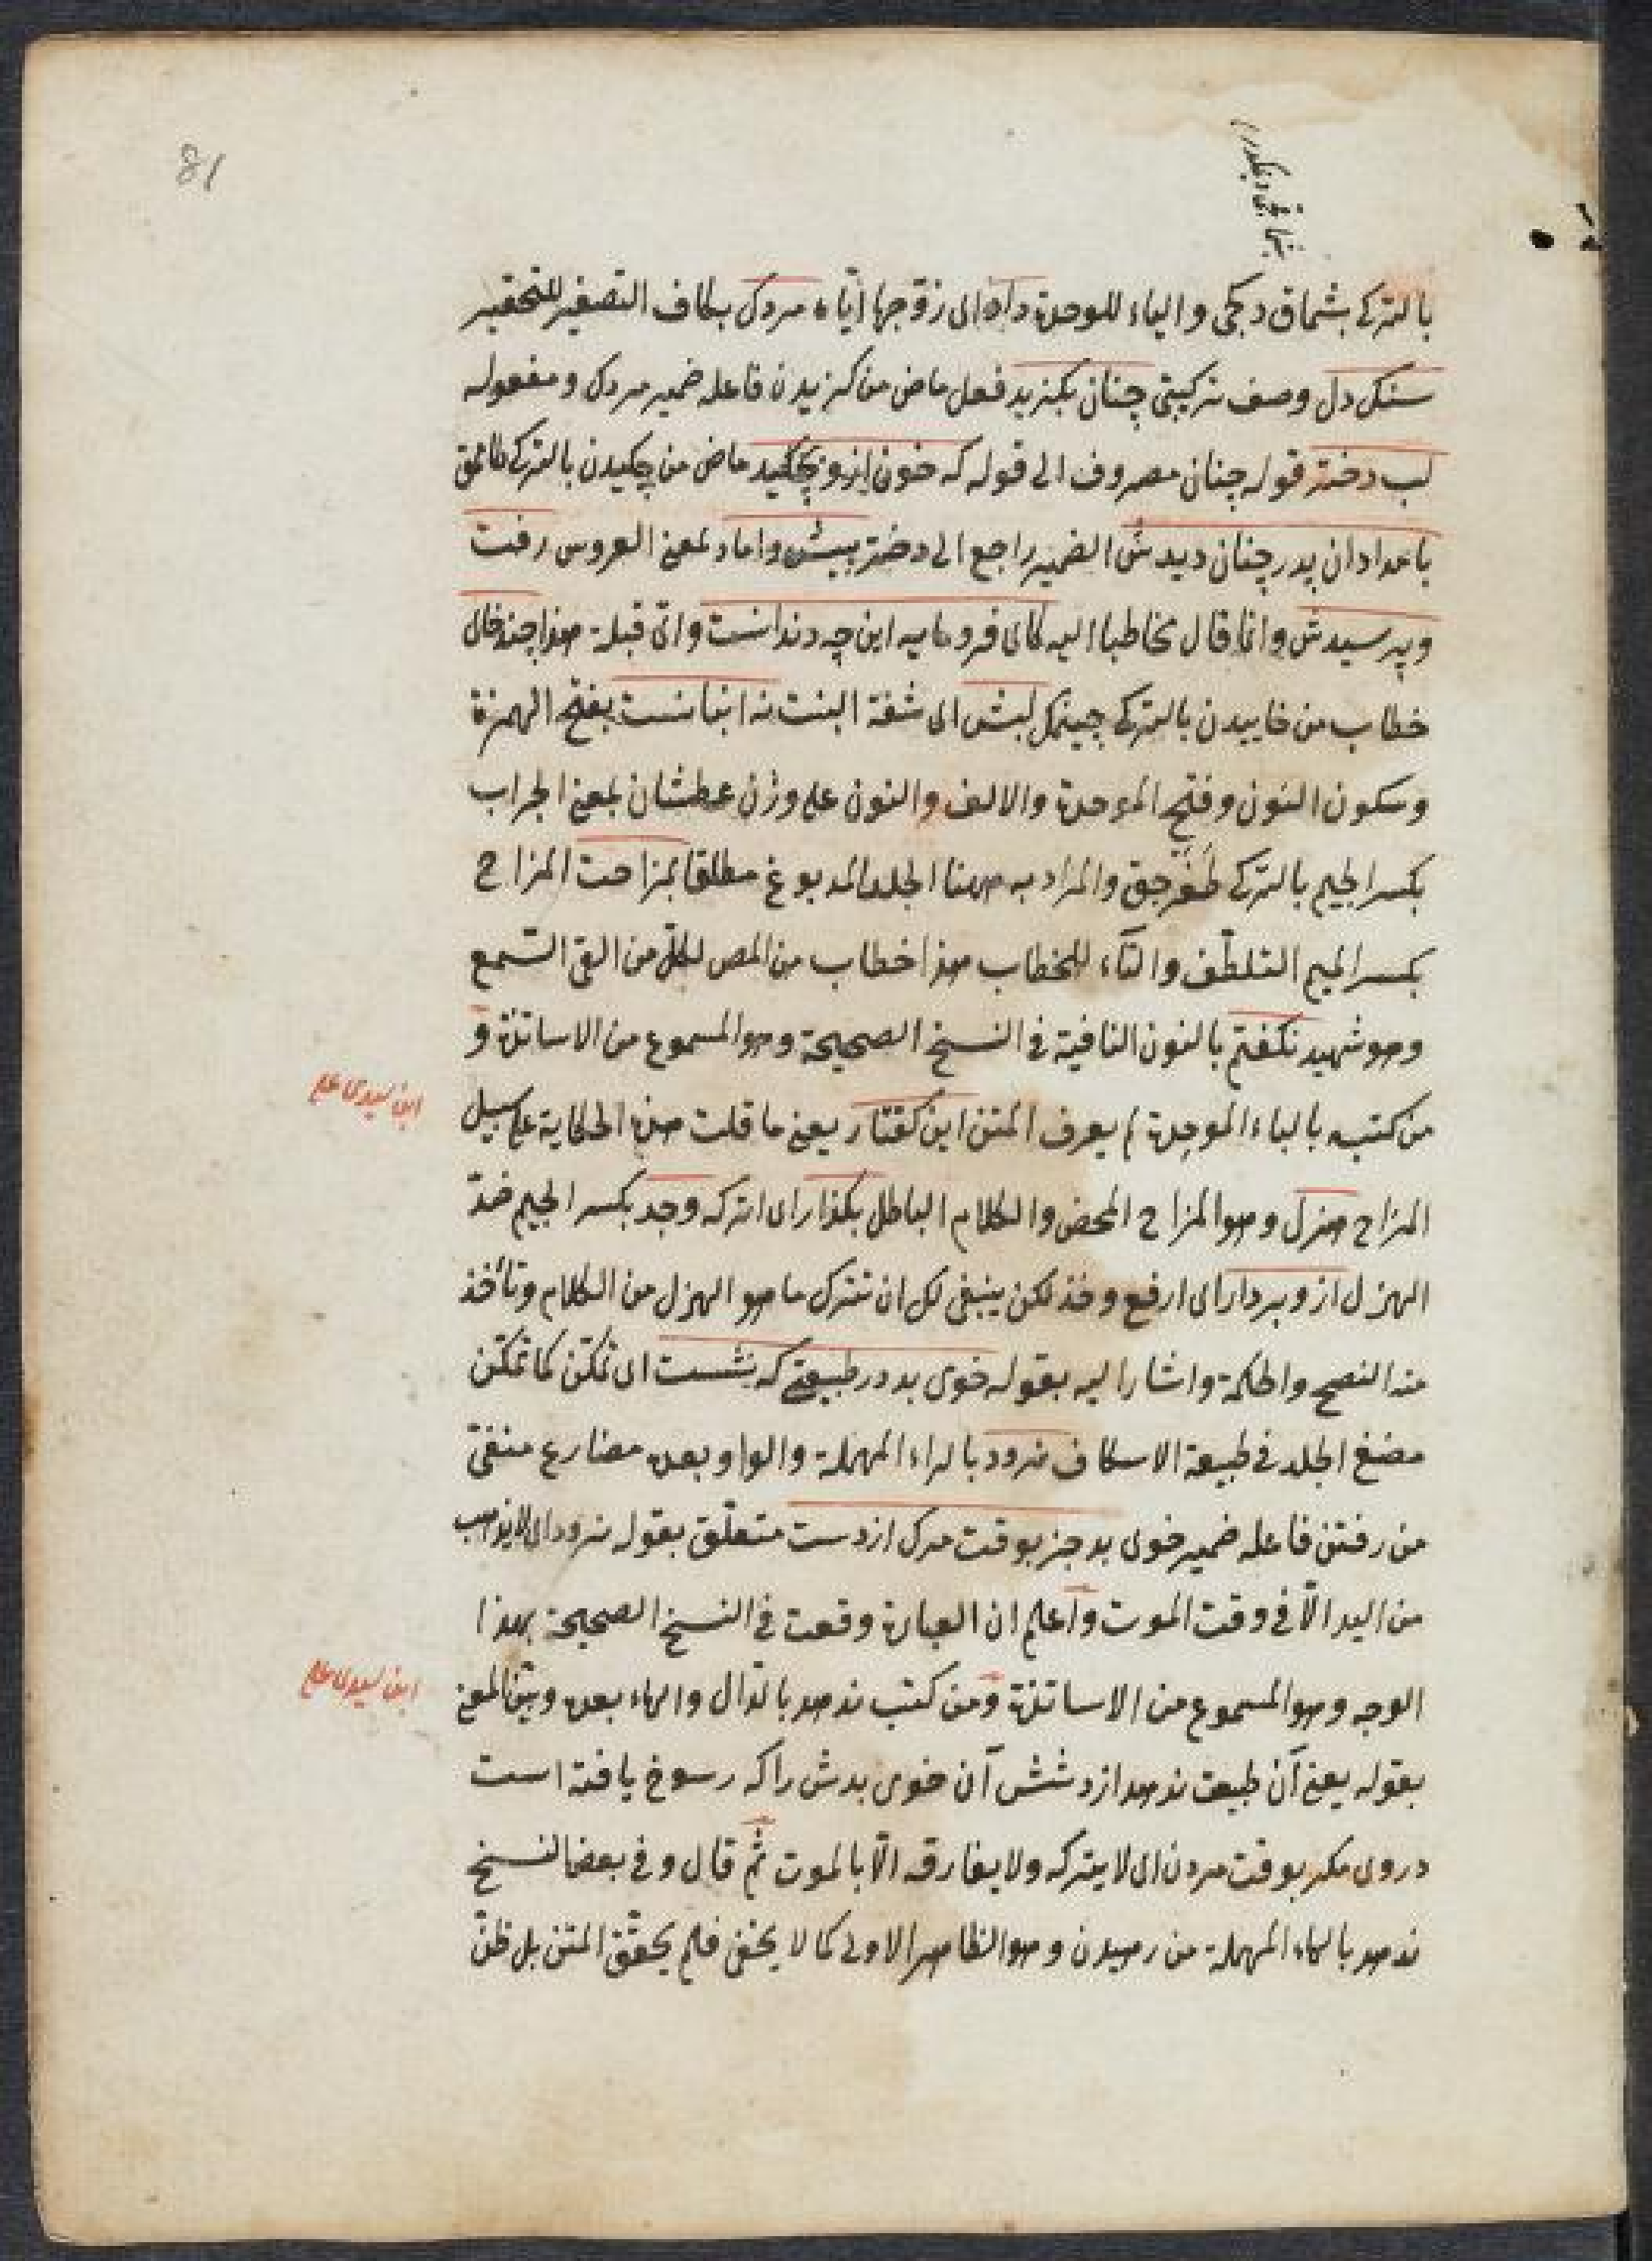 81
بالتركى بشماق دكجى والياء للوحدة داد اى زوّجها ايّاه مردك بكاف التصغير للتحقير
سنكدل وصف تركيبى چنان بكزيد فعل ماض من كزيدن فاعله ضمير مردك ومفعوله
لب دختر قوله چنان مصروف الى قوله كه خون ازو بچكيد ماض من چكيدن بالتركى طاملق
بامدادان پدر چنان ديدش الضمير راجع الى دختر پيش داماد بمعنى العروس رفت
وپرسيدش وانما قال مخاطبا اليه كاى فرومايه اين چه دندانست واىّ قبلة هذا چند خايى
خطاب من خاييدن بالتركى چينمك لبش اى شفة البنت نه انبانست بفتح الهمزة
وسكون النون وفتح الموحدة والالف والنون على وزن عطشان بمعنى الجراب
بكسر الجيم بالتركى طغرجق والمراد به ههنا الجلد المدبوغ مطلقا بمزاحت المزاح
بكسر الميم التلطّف والتاء للخطاب هذا خطاب من المص لكلّ من القى السّمع
وهو شهيد نكفتم بالنون النافية فى النسخ الصحيحة وهو المسموع من الاساتذة و
من كتبه بالباء الموحدة لم يعرف المتن اين كفتار يعنى ما قلت هذه الحكاية على سبيل
ابن سيدى على
المزاح هزل وهو المزاح المحض والكلام الباطل بكذار اى اتركه وجد بكسر الجيم ضدّ
الهزل ازو بردار اى ارفع وخذ لكن ينبغى لك ان تترك ما هو الهزل من الكلام وتأخذ
منه النصح والحكمة واشار اليه بقوله خوى بد در طبيعتى كه نشست اى تمكّن كما تمكّن
مضغ الجلد فى طبيعة الاسكاف نرود بالراء المهملة والواو بعده مضارع منفىّ
من رفتن فاعله ضمير خوى بد جز بوقت مرك از دست متعلّق بقوله نرود اى لا يذهب
من اليد الّا فى وقت الموت واعلم ان العبارة وقعت فى النسخ الصحيحة بهذا
الوجه وهو المسموع من الاساتذة ومن كتب ندهد بالدال والهاء بعده وبيّن المعنى
ابن سيدى على
بقوله يعنى آن طبيعت ندهد از دستش آن خوى بدش را كه رسوخ يافته است
دروى مكر بوقت مردن اى لا يتركه ولا يفارقه الّا بالموت ثم قال وفى بعض النسخ
ندهد بالهاء المهملة من رهيدن وهو الظاهر الاولى كما لا يخفى فلم يحقّق المتن بل ظنّ